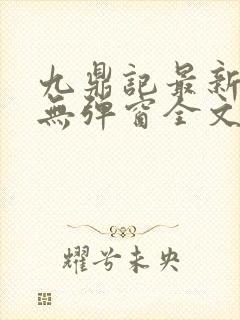 九鼎記最新
無彈窗全文
耀兮未央